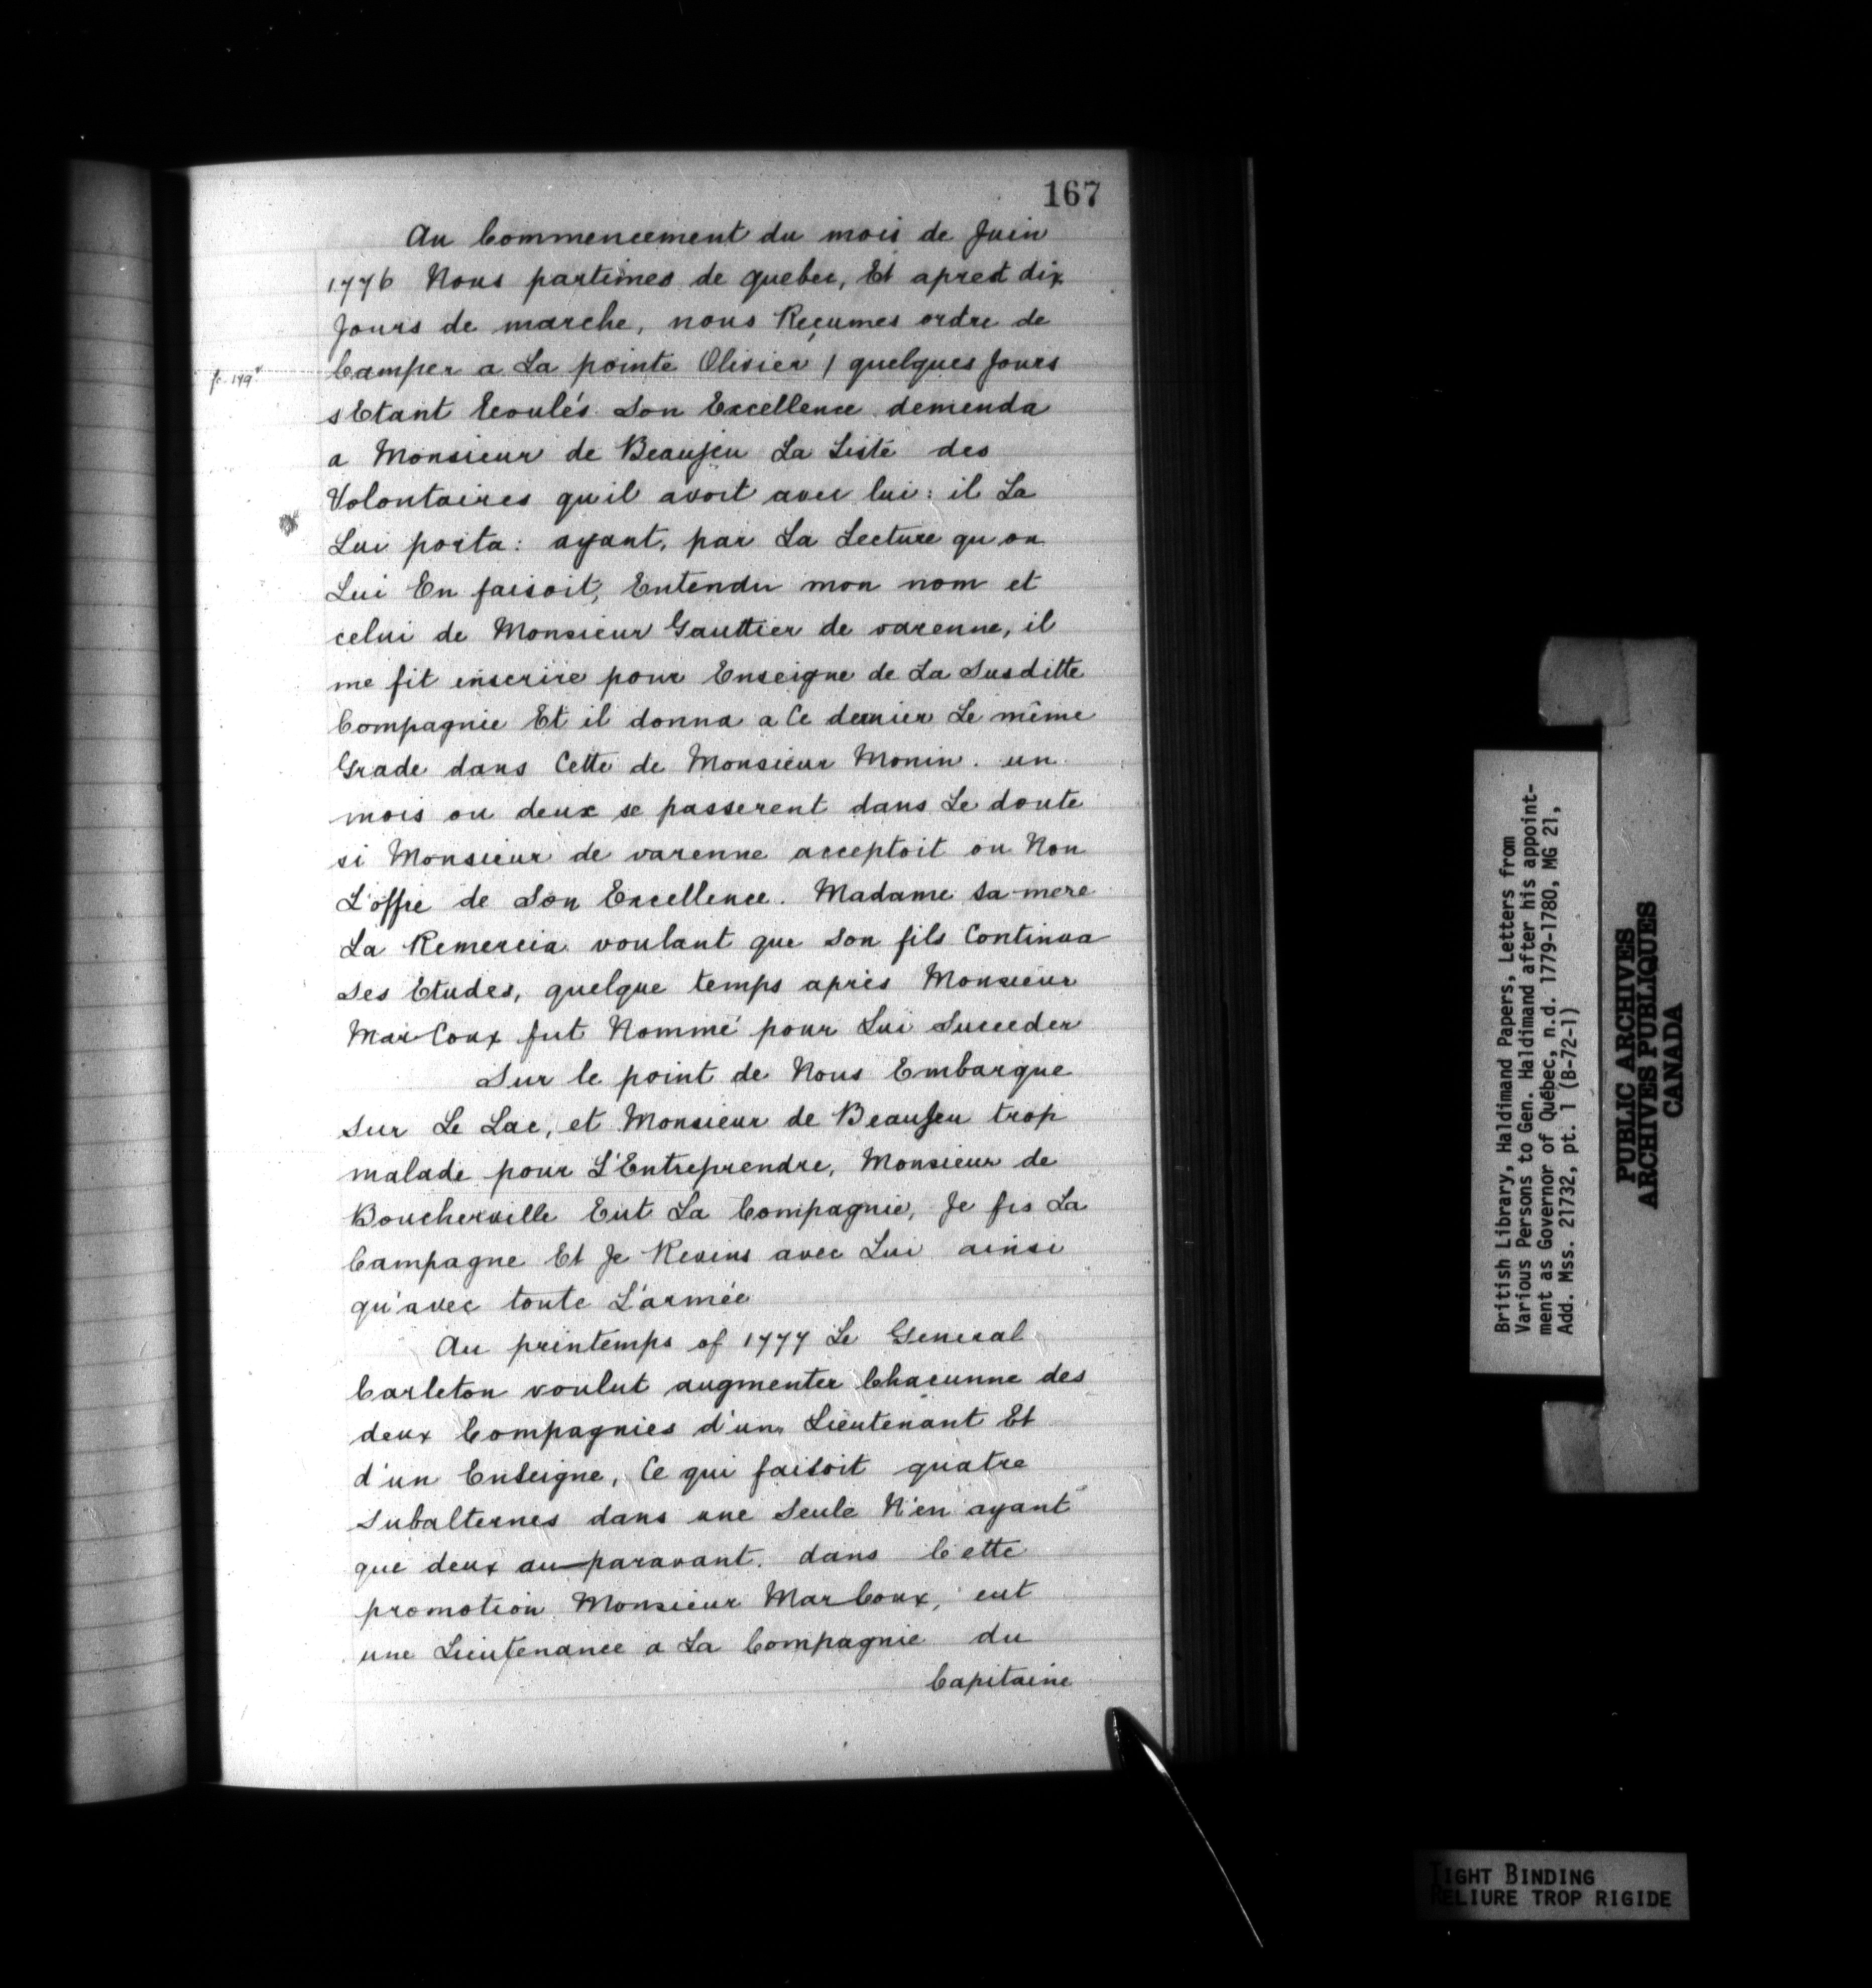 167
Au Commencement du mois de Juin
1776 Nous partimes de quebec, Et aprest dix
Jours de marche, nous Reçumes ordre de
Camper a La pointe Olivier / quelques Jours
sEtant Ecoulés Son Excellence demenda
a Monsieur de Beaujeu La Liste des
Volontaires qu il avoit avec lui: il La
Lui porta: ayant, par La Lecture qu on
Lui En faisoit, Entendu mon nom et
celui de Monsieur Gauttier de varenne, il
me fit inscrire pour Enseigne de La Susditte
Compagnie Et il donna a Ce dernier Le même
Grade dans Cette de Monsieur Monin. un
mois ou deux se passerent dans Le doute
si Monsieur de varenne acceptoit ou Non
L'offre de Son Excellence. Madame sa mere
La Remercia voulant que Son fils Continua
Ses Etudes, quelque temps après Monsieur
MarCoux fut Nommé pour Lui Succeder
Sur le point de Nous Embarque
Sur Le Lac, et Monsieur de BeauJeu trop
malade pour L'Entreprendre, Monsieur de
Boucherville Eut La Compagnie, Je fis La
Campagne Et Je Revins avec Lui ainsi
qu'avec toute L'armée
Au printemps of 1777 Le General
Carleton voulut augmenter Chacunne des
deux Compagnies d'un Lieutenant Et
d'un Enseigne, Ce qui faisoit quatre
Subalternes dans une Seule N'en ayant
que deux au-paravant. dans Cette
promotion Monsieur MarCoux, eut
une Lieutenance a La Compagnie du
Capitaine
fo. 149v
British Library, Haldimand Papers, Letters from
Various Persons to Gen. Haldimand after his appoint-
ment as Governor of Québec, n.d. 1779-1780, MG 21,
Add. Mss. 21732, pt. 1 (B-72-1)
PUBLIC ARCHIVES
ARCHIVES PUBLIQUES
CANADA
TIGHT BINDING
RELIURE TROP RIGIDE